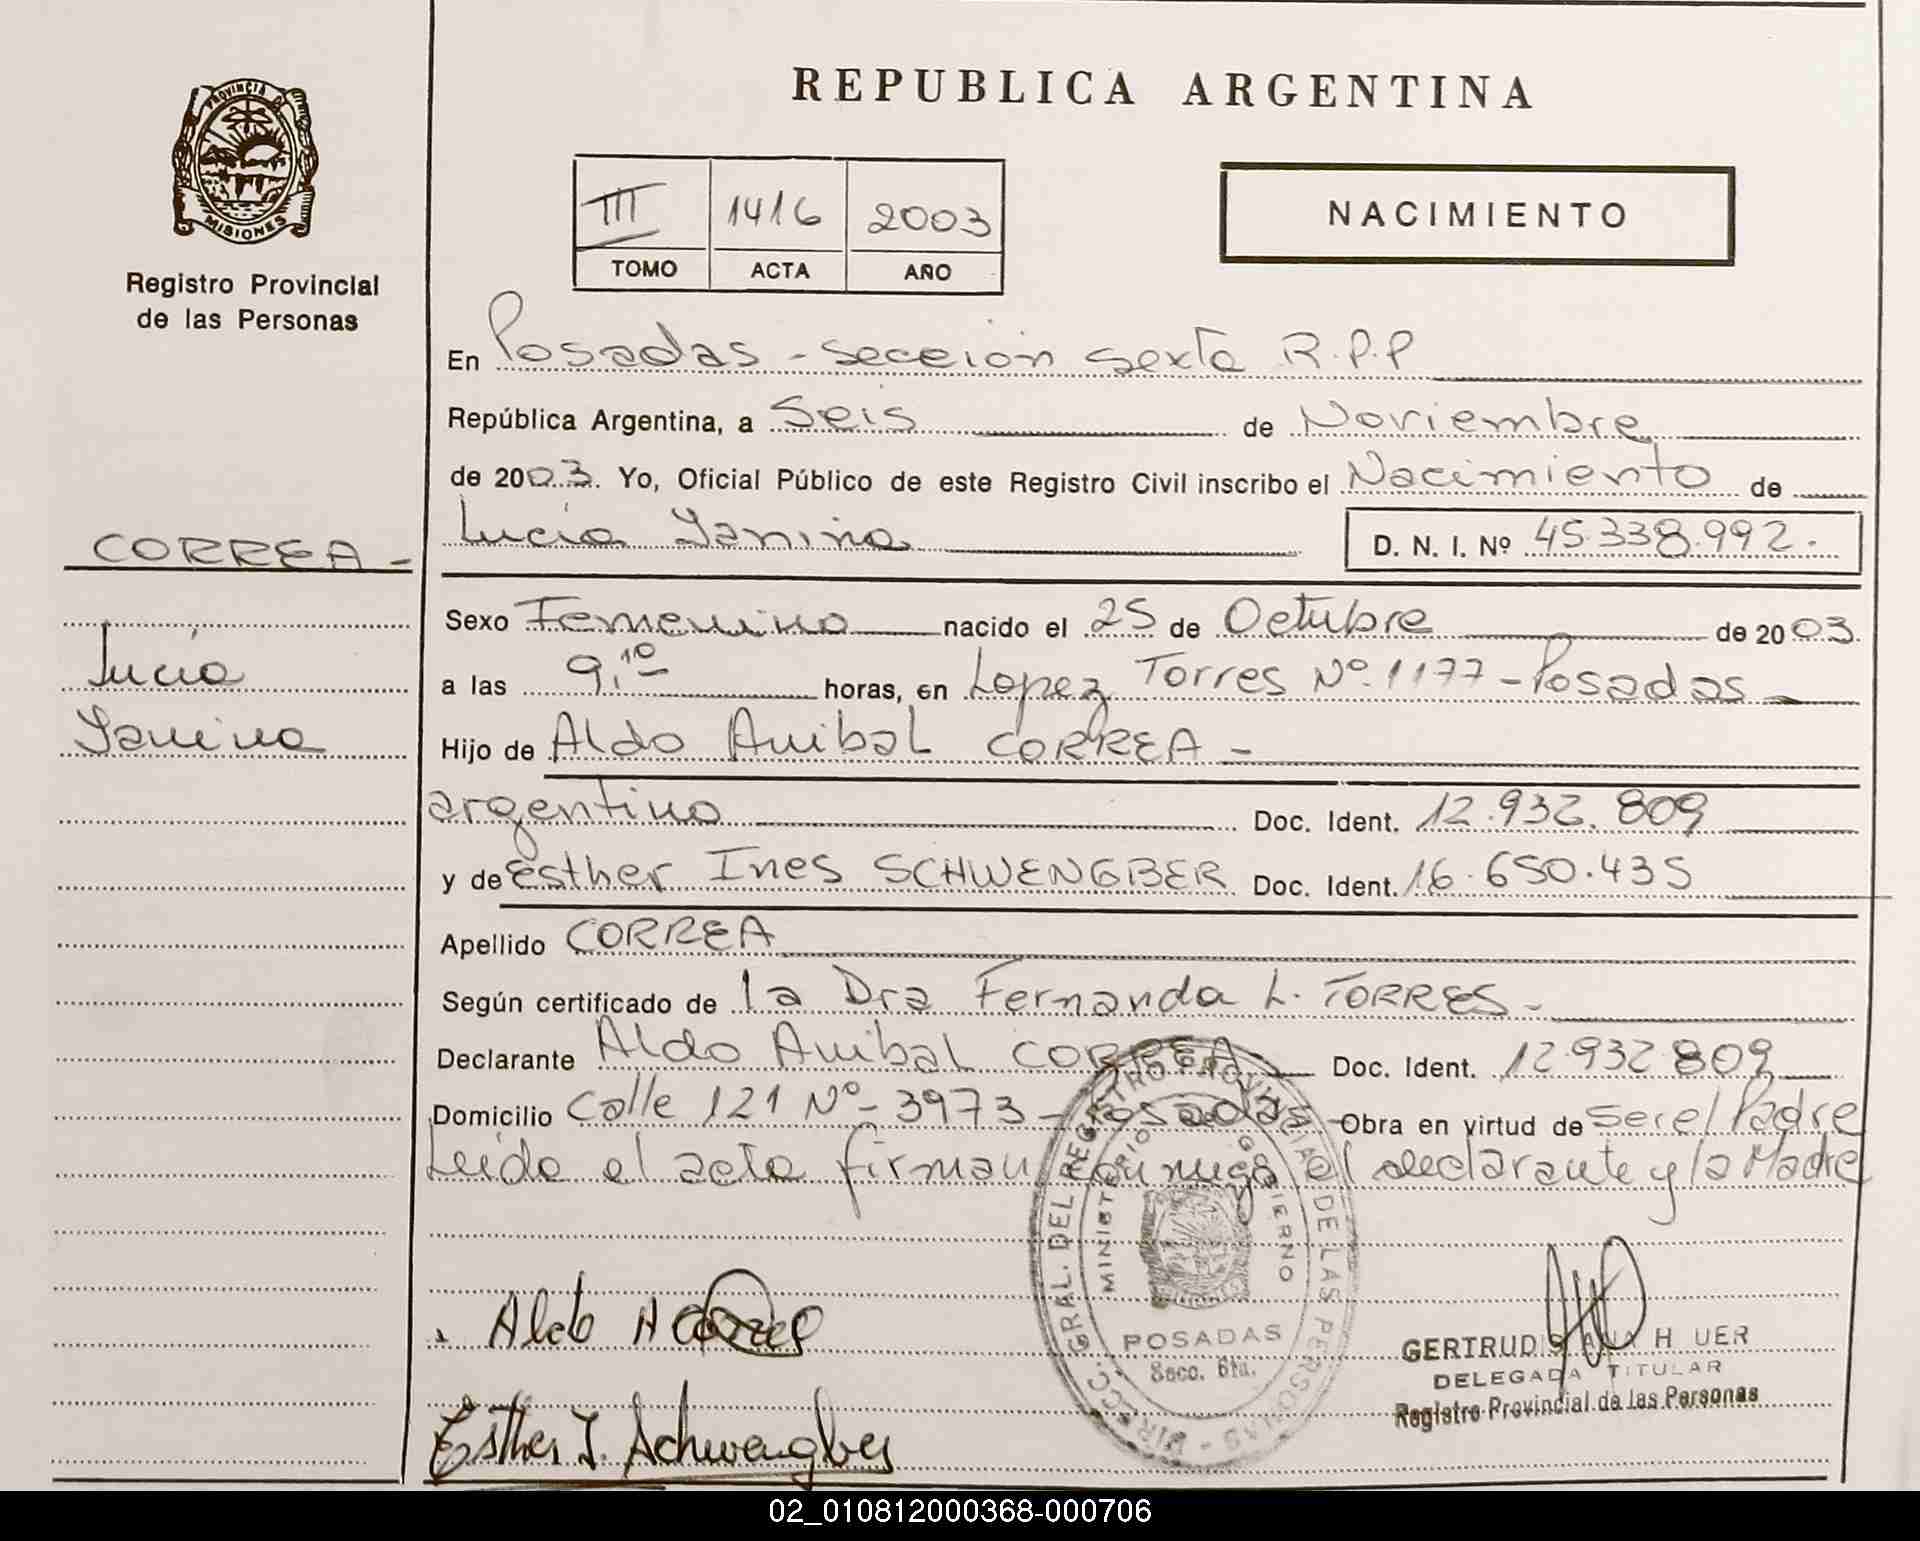 REPUBLICA ARGENTINA
PROVINCIA DE
MISIONES
Registro Provincial
de las Personas
III 1416 2003
TOMO ACTA AÑO
NACIMIENTO
En Posadas - sección sexta R.P.P
República Argentina, a Seis de Noviembre
de 2003. Yo, Oficial Público de este Registro Civil inscribo el Nacimiento de
Lucía Yanina D. N. I. Nº 45.338.992.-
CORREA -
Lucía
Yanina
Sexo Femenino nacido el 25 de Octubre de 2003.
a las 9,10 horas, en Lopez Torres Nº. 1177 - Posadas -
Hijo de Aldo Anibal CORREA -
argentino Doc. Ident. 12.932.809
y de Esther Ines SCHWENGBER Doc. Ident. 16.650.435
Apellido CORREA
Según certificado de la Dra Fernanda L. TORRES -
Declarante Aldo Anibal CORREA - Doc. Ident. 12.932.809
Domicilio Calle 121 Nº - 3973 - Posadas - Obra en virtud de ser el Padre
Leída el acta firman conmigo el declarante y la Madre
DIRECC. GRAL. DEL REGISTRO PROVINCIAL DE LAS PERSONAS -
MINISTERIO GOBIERNO
POSADAS
Secc. 6ta.
Aldo A Correa
Esther I. Schwengber
GERTRUDIS ANA
DELEGADA TITULAR
Registro Provincial de las Personas
02_010812000368-000706